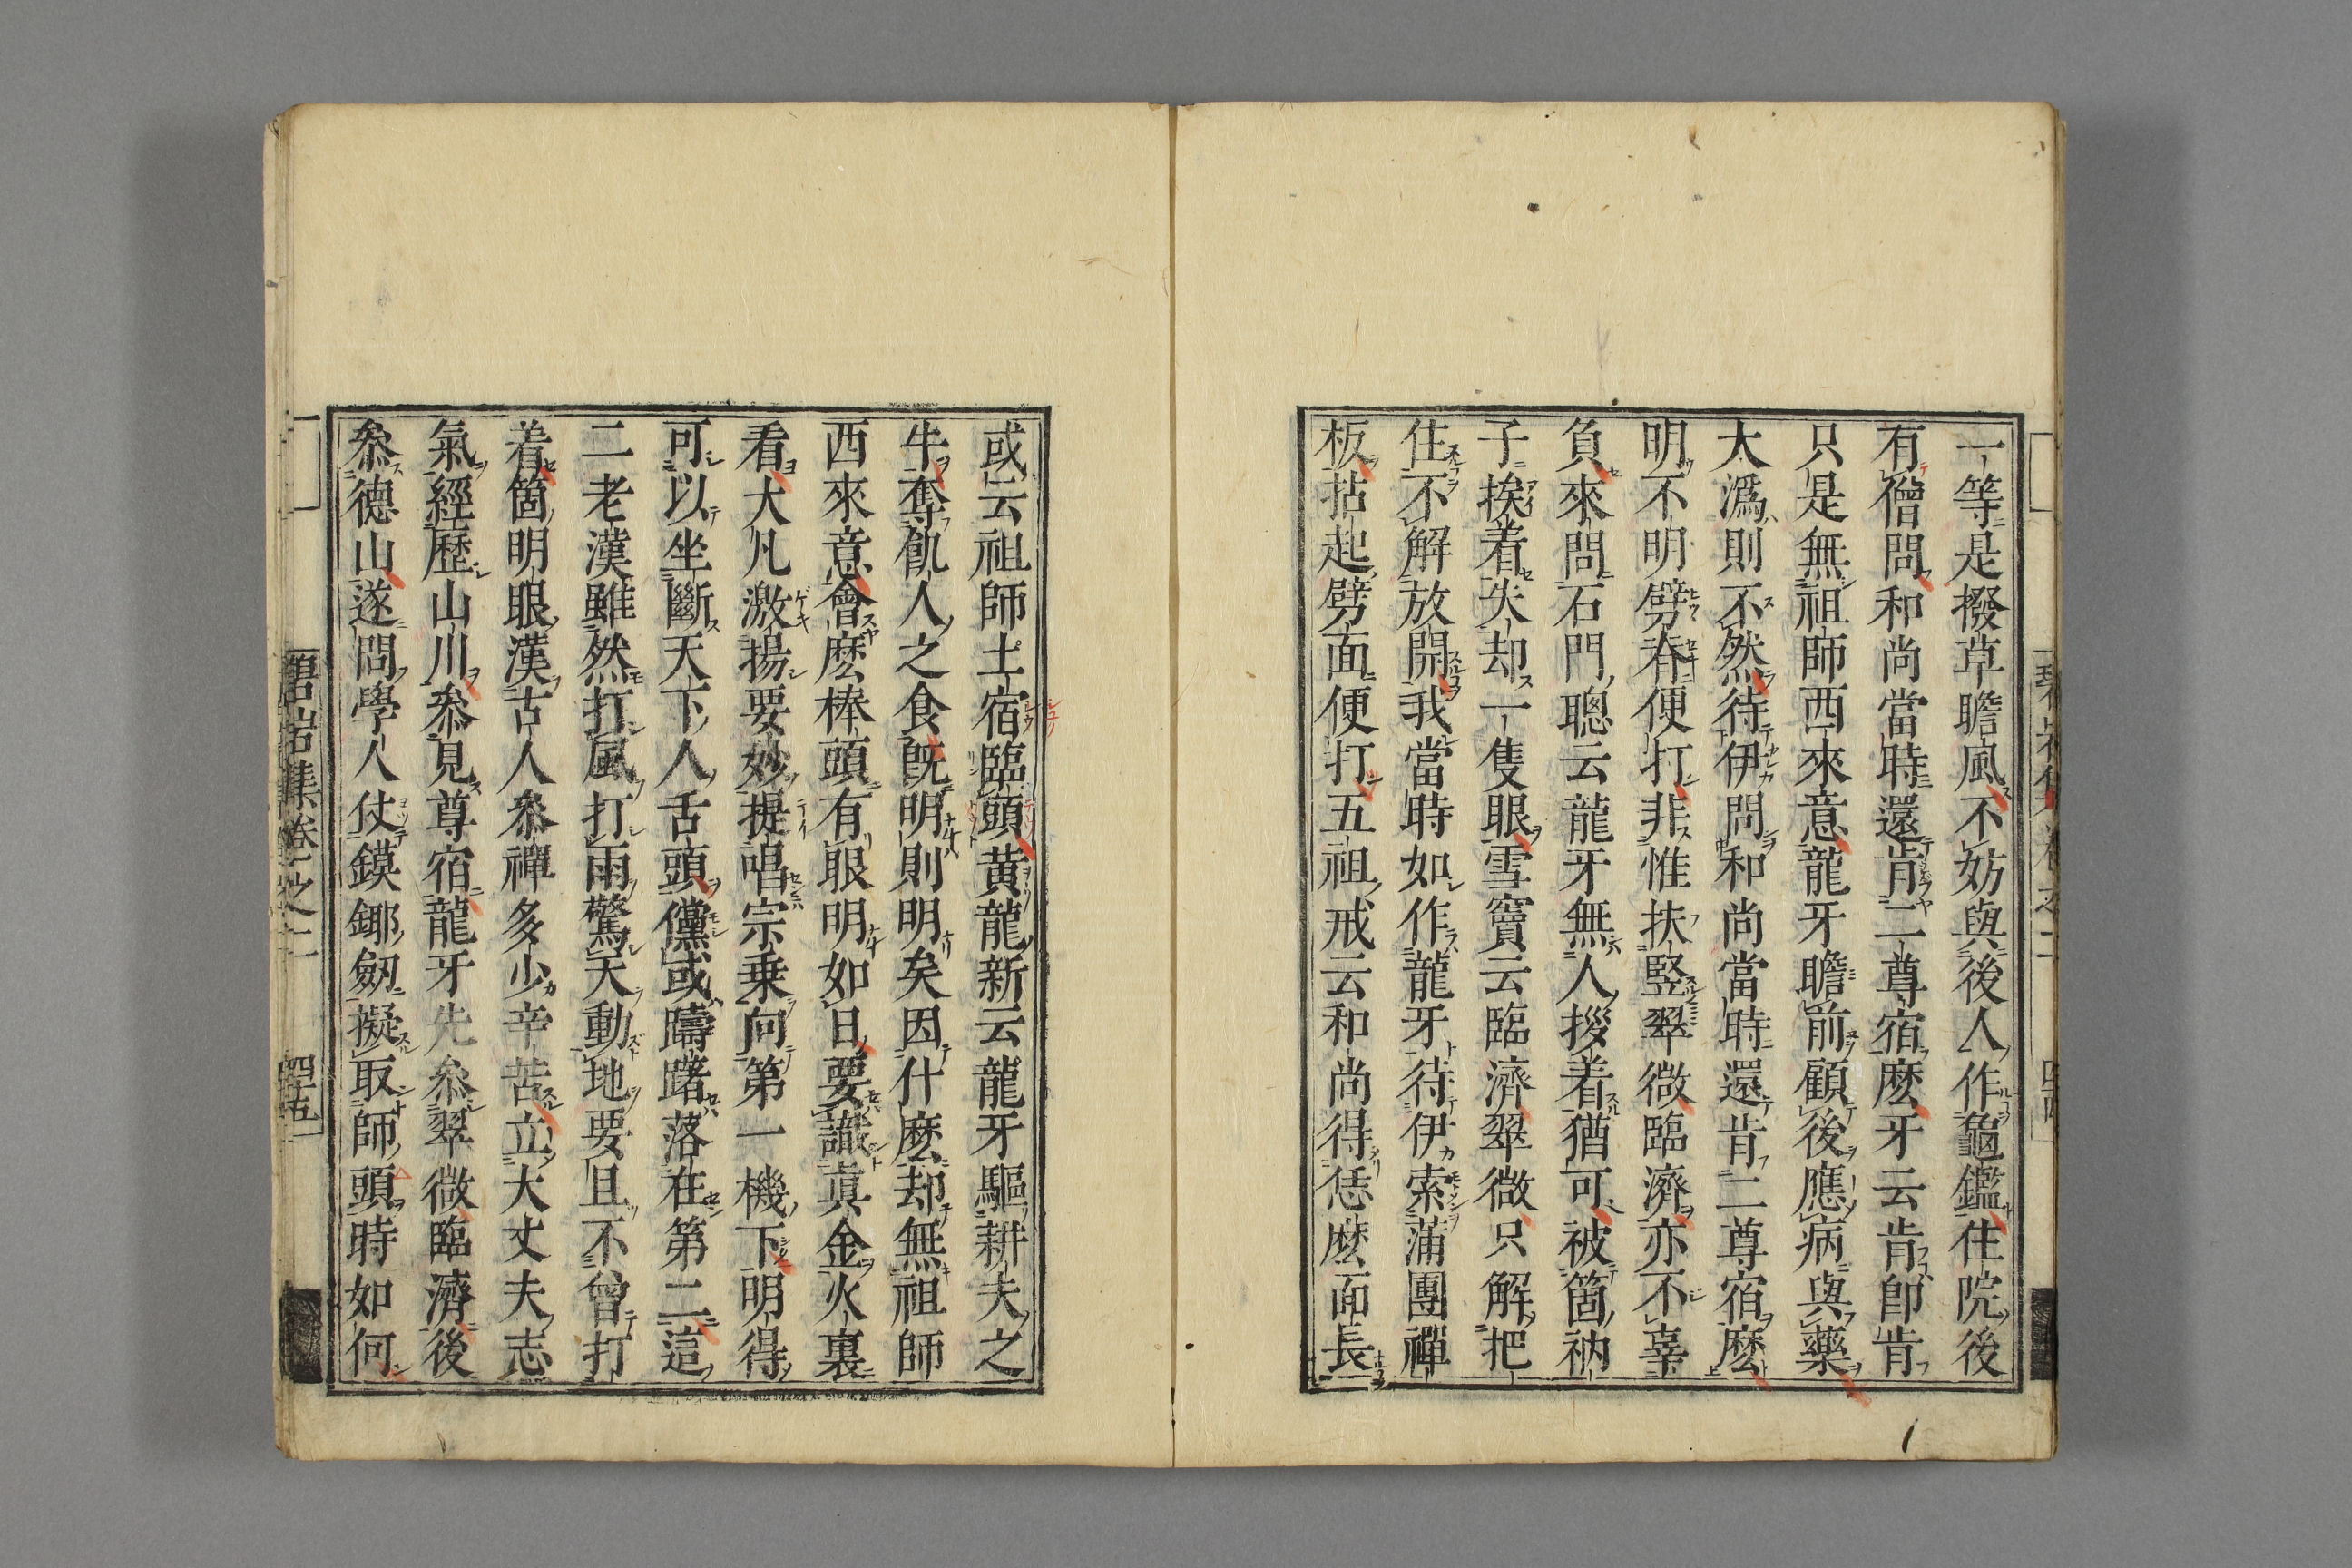 一等是撥草瞻風不妨與後人作龜鑑住院後
有僧問和尚當時還肯二尊宿麽牙云肯即肯
只是無祖師西來意龍牙瞻前顧後應病與藥
大潙則不然待伊問和尚當時還肯二尊宿麽
明不明劈脊便打非惟扶竪翠微臨濟亦不辜
負來問石門聰云龍牙無人拶着猶可被箇衲
子挨着失却一隻眼雪竇云臨濟翠微只解把
住不解放開我當時如作龍牙待伊索蒲團禪
板拈起劈面便打五祖戒云和尚得恁麽面長
或云祖師土宿臨頭黄龍新云龍牙驅耕夫之
牛奪飢人之食既明則明矣因什麽却無祖師
西來意會麽棒頭有眼明如日要識眞金火裏
看大凡激揚要妙提唱宗乗向第一機下明得
可以坐斷天下人舌頭儻或躊躇落在第二這
二老漢雖然打風打雨驚天動地要且不曾打
着箇明眼漢古人叅禪多少辛苦立大丈夫志
氣經歷山川叅見尊宿龍牙先叅翠微臨濟後
叅德山遂問學人仗鏌鎁劒擬取師頭時如何
碧岩集卷之二
四十五